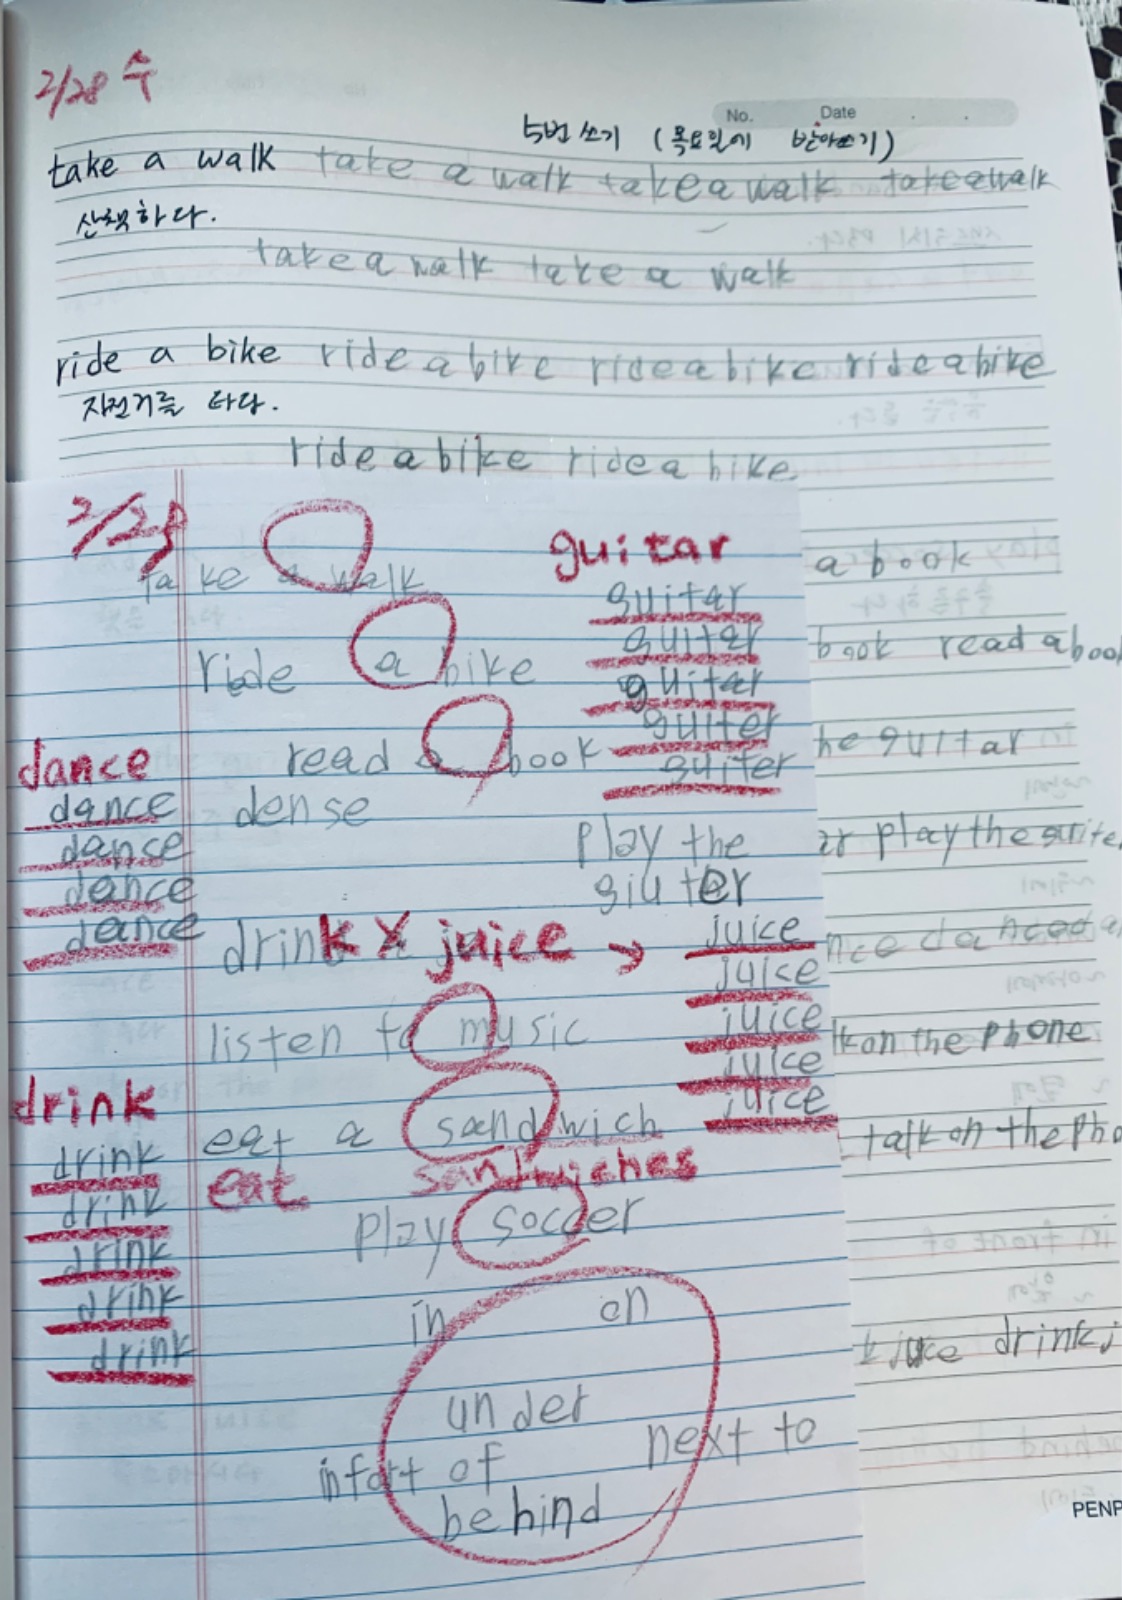 2/28 수
No. Date
5번 쓰기 (목요일에 받아쓰기)
take a walk take a walk take a walk take a walk
산책하다.
take a walk take a walk
ride a bike ride a bike ride a bike ride a bike
자전거를 타다.
ride a bike ride a bike
2/28
take a walk
guitar
guitar
guitar
guitar
guiter
guiter
a book
ride a bike
book read a boo
read a book
he guitar
dance
dance
dance
dance
dance
dense
play the
giuter
play the
drink X juice → juice
juice
juice
juice
juice
listen to music
lk on the phone
drink
drink
drink
drink
drink
drink
eat a sandwich
eat sandwiches
talk on the pho
play soccer
in on
juice drink j
under
next to
infort of
behind
PENP